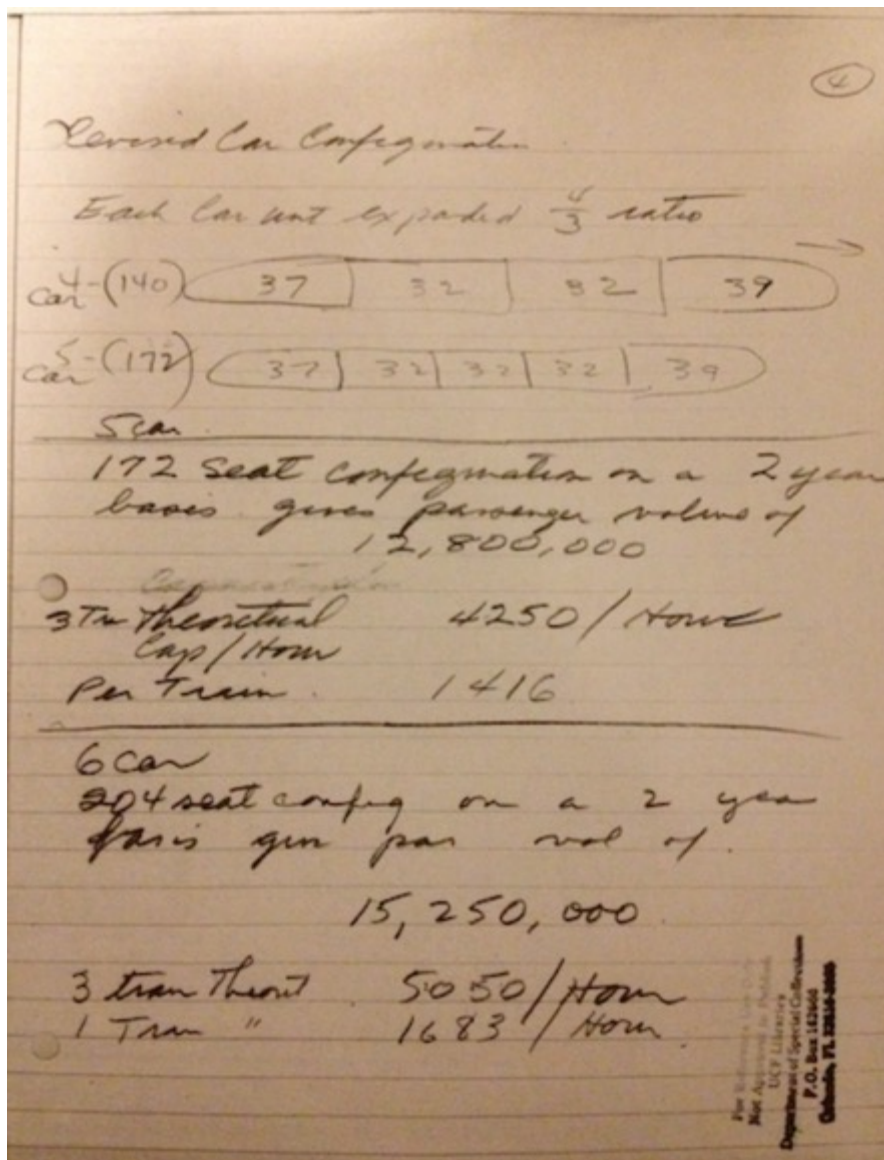 4
Revised Car Configuration
Each Car unit expanded 4/3 ratio
4-car (140) 37 32 32 39
5-car (172) 37 32 32 32 39
5 car
172 seat configuration on a 2 year
basis gives passenger volume of
12,800,000
3 Tr Theoretical 4250 / Hour
Cap / Hour
Per Train 1416
6 Car
204 seat config on a 2 year
basis give pas vol of
15,250,000
3 train Theoret 5050 / Hour
1 Train " 1683 / Hour
For Reference Use Only
UCF Libraries
Department of Special Collections
P.O. Box 162666
Orlando, FL